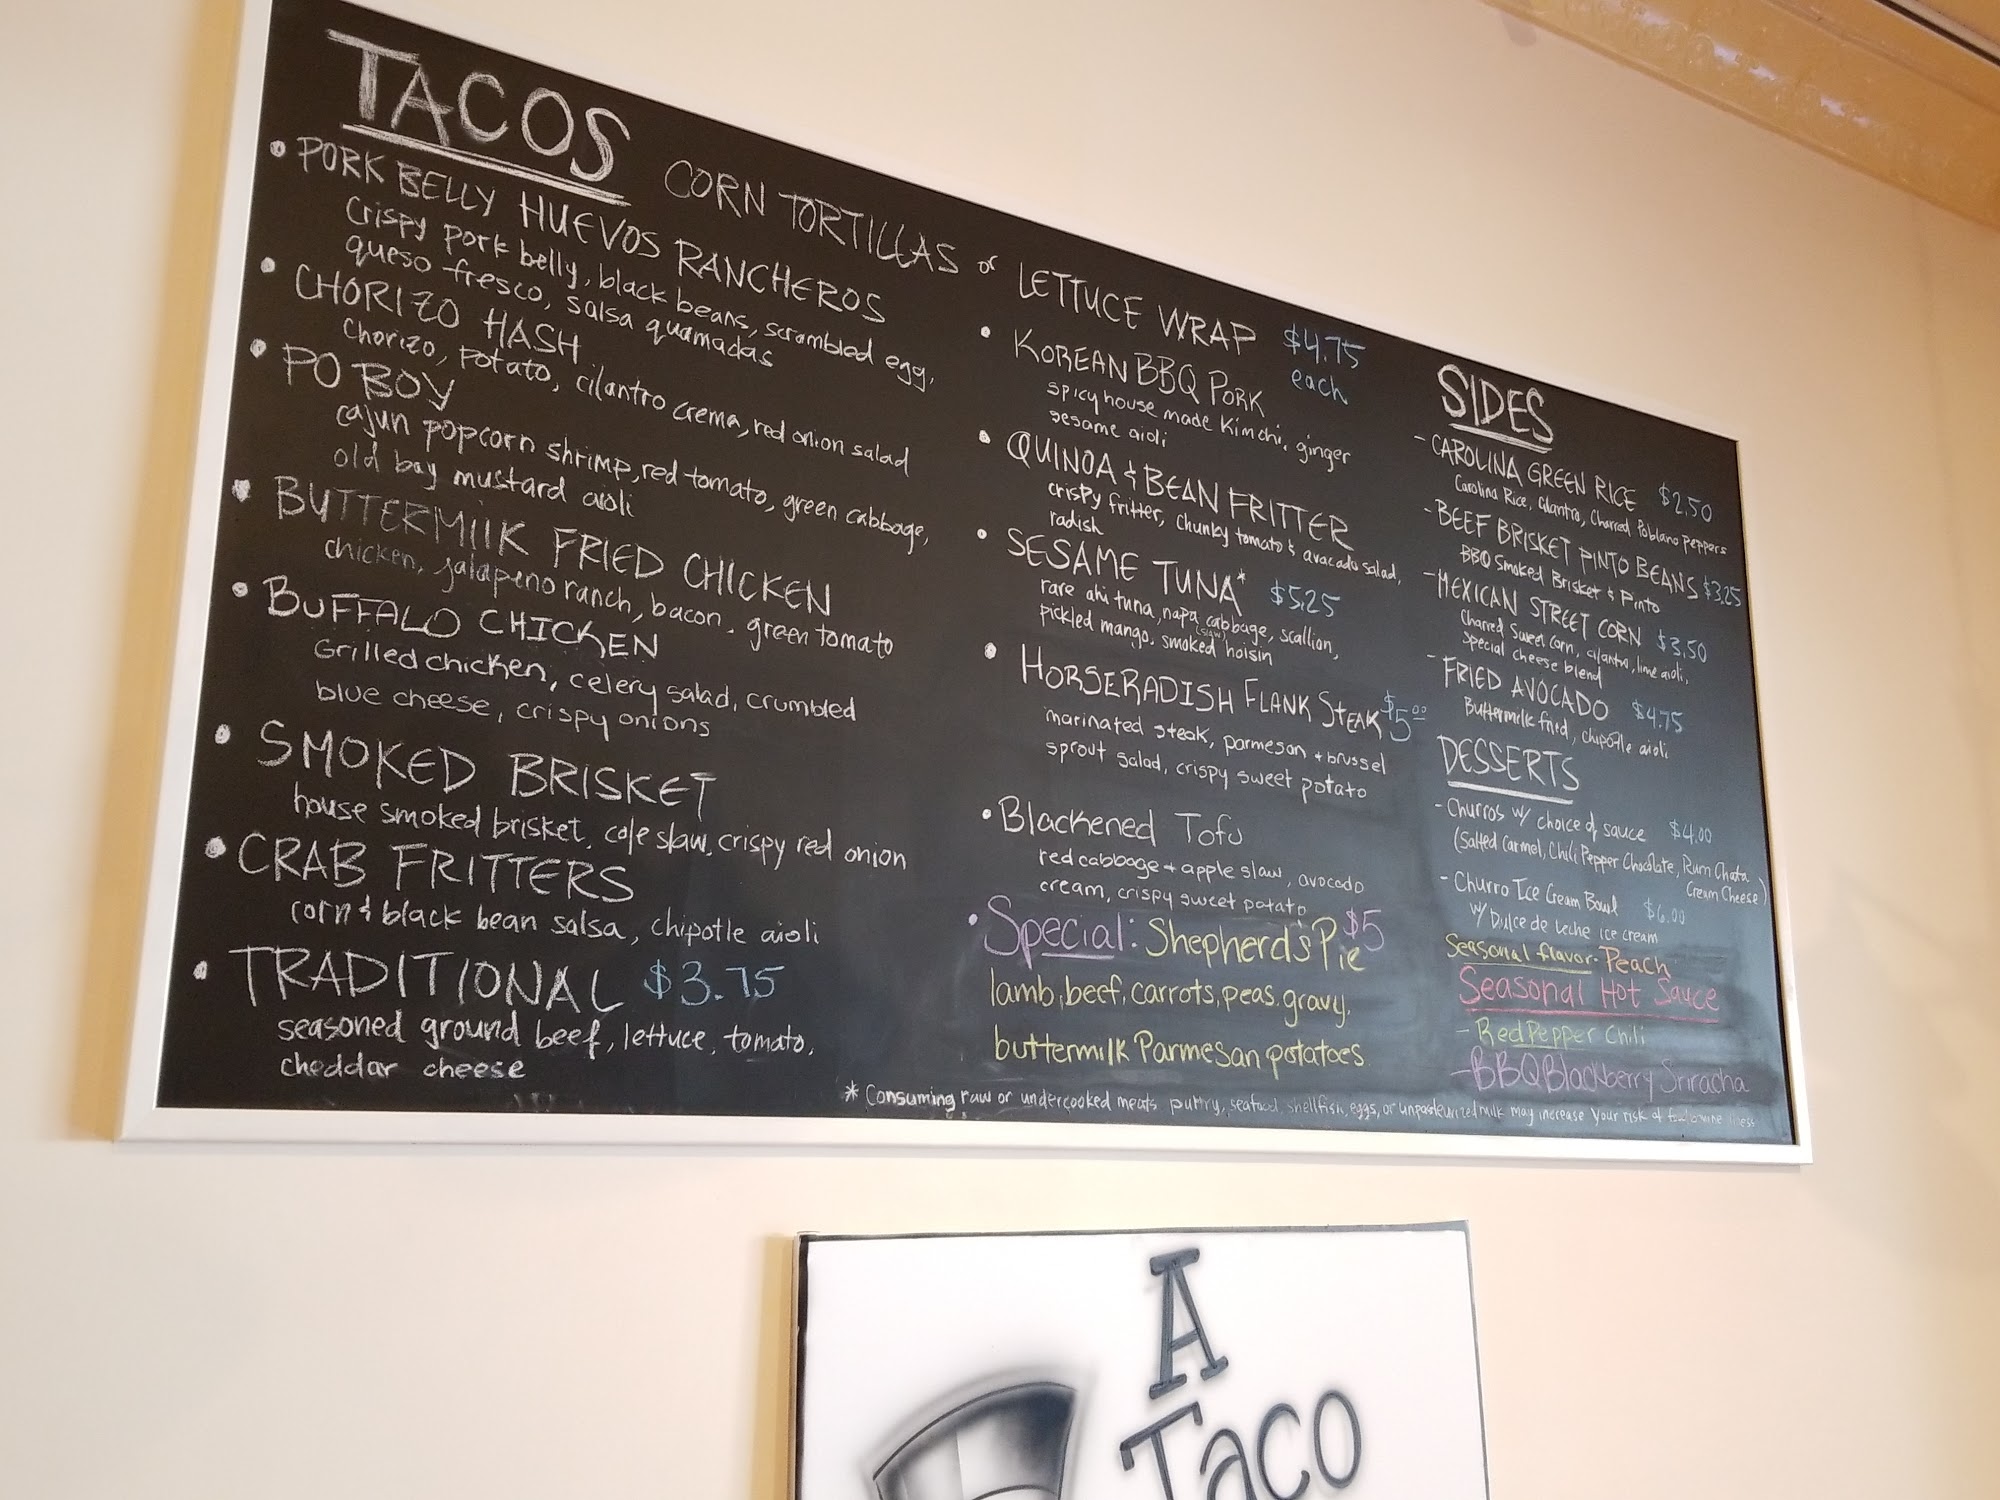 TACOS
CORN TORTILLAS or LETTUCE WRAP $4.75
each
• PORK BELLY HUEVOS RANCHEROS
Crispy pork belly, black beans, scrambled egg,
queso fresco, salsa quamadas
• CHORIZO HASH
Chorizo, potato, cilantro crema, red onion salad
• PO BOY
cajun popcorn shrimp, red tomato, green cabbage,
old bay mustard aioli
• BUTTERMILK FRIED CHICKEN
chicken, jalapeno ranch, bacon, green tomato
• BUFFALO CHICKEN
Grilled chicken, celery salad, crumbled
blue cheese, crispy onions
• SMOKED BRISKET
house smoked brisket, cole slaw, crispy red onion
• CRAB FRITTERS
corn & black bean salsa, chipotle aioli
• TRADITIONAL $3.75
seasoned ground beef, lettuce, tomato,
cheddar cheese
• KOREAN BBQ PORK
spicy house made Kimchi, ginger
sesame aioli
• QUINOA & BEAN FRITTER
crispy fritter, chunky tomato & avocado salad,
radish
• SESAME TUNA* $5.25
rare ahi tuna, napa cabbage, scallion,
(slaw)
pickled mango, smoked hoisin
• HORSERADISH FLANK STEAK $5.00
marinated steak, parmesan + brussel
sprout salad, crispy sweet potato
• Blackened Tofu
red cabbage + apple slaw, avocado
cream, crispy sweet potato
• Special: Shepherd's Pie $5
lamb, beef, carrots, peas, gravy,
buttermilk Parmesan potatoes
SIDES
- CAROLINA GREEN RICE $2.50
Carolina Rice, Cilantro, Charred Poblano Peppers
- BEEF BRISKET PINTO BEANS $3.25
BBQ Smoked Brisket & Pinto
- MEXICAN STREET CORN $3.50
Charred Sweet Corn, cilantro, lime aioli,
special cheese blend
- FRIED AVOCADO $4.75
Buttermilk fried, chipotle aioli
DESSERTS
- Churros w/ choice of sauce $4.00
(Salted Carmel, Chili Pepper Chocolate, Rum Chata
Cream Cheese)
- Churro Ice Cream Bowl $6.00
w/ Dulce de Leche ice cream
Seasonal flavor- Peach
Seasonal Hot Sauce
- Red Pepper Chili
- BBQ Blackberry Sriracha
* Consuming raw or undercooked meats, pultry, seafood, shellfish, eggs, or unpasteurized milk may increase your risk of foodborne illness
A
Taco